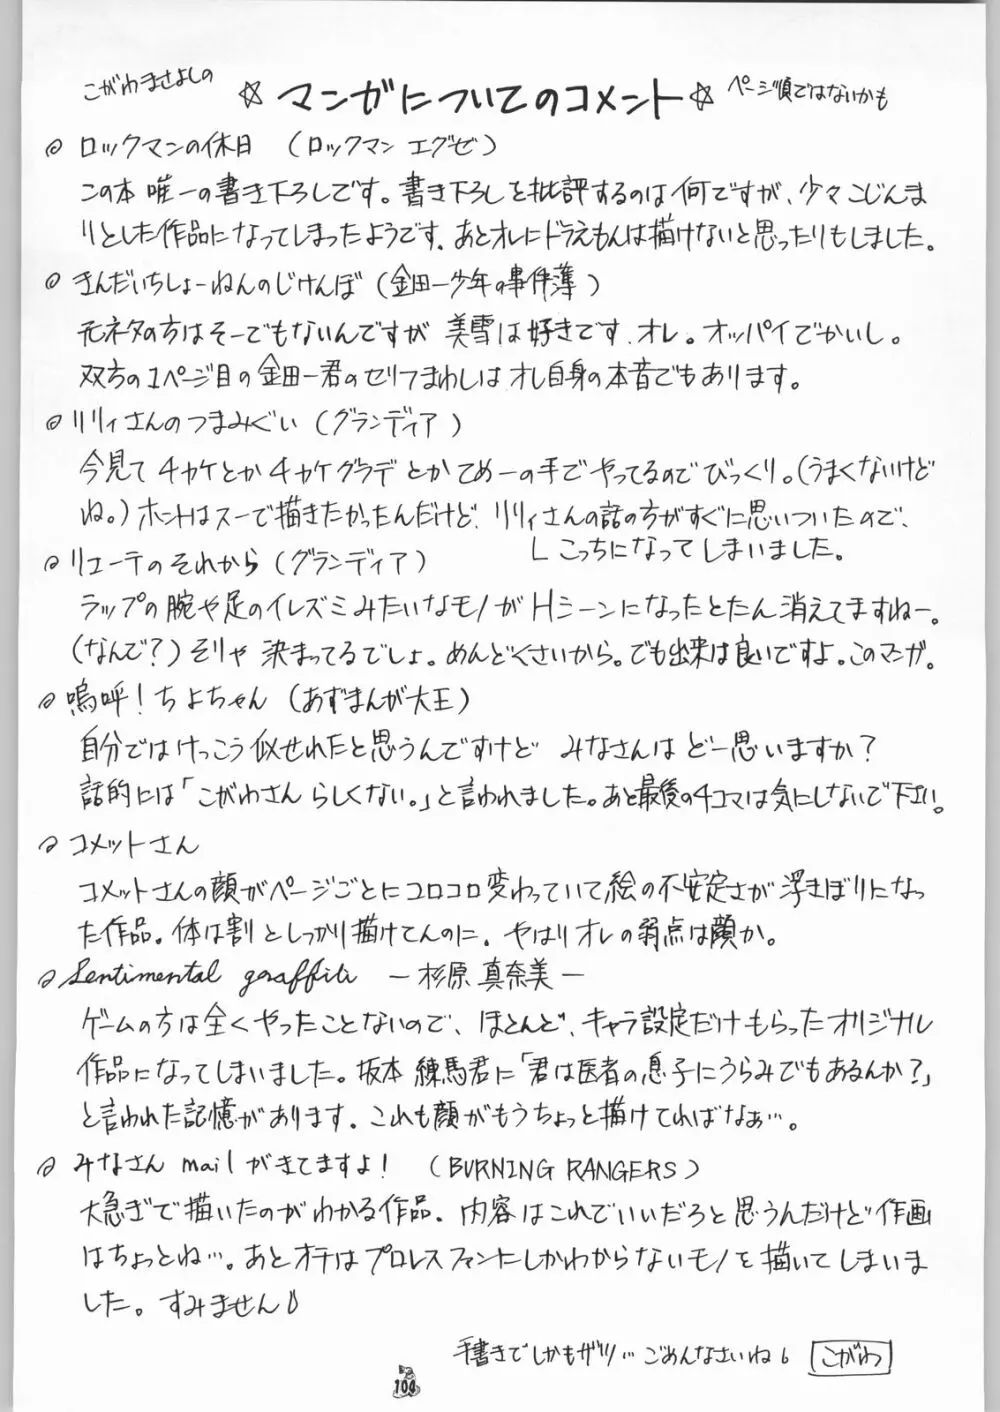 こがわまさよしの
☆ マンガについてのコメント ☆
ページ順ではないかも
ロックマンの休日 (ロックマン エグゼ)
この本 唯一の書き下ろしです。書き下ろしを批評するのは何ですが、少々こじんま
りとした作品になってしまったようです。あとオレにドラえもんは描けないと思ったりもしました。
きんだいちしょーねんのじけんぼ (金田一少年の事件簿)
元ネタの方はそーでもないんですが 美雪は好きです、オレ。オッパイでかいし。
双方の1ページ目の金田一君のセリフまわしはオレ自身の本音でもあります。
リリィさんのつまみぐい (グランディア)
今見て チカケとか チカケグラデ とか てめーの手でやってるのでびっくり。(うまくないけど
ね。) ホントはスーで描きたかったんだけど、リリィさんの話の方がすぐに思いついたので、
こっちになってしまいました。
リエーテのそれから (グランディア)
ラップの腕や足のイレズミみたいなモノがHシーンになったとたん消えてますねー。
(なんで?) そりゃ 決まってるでしょ。めんどくさいから。でも出来は良いですよ。このマンガ。
嗚呼! ちよちゃん (あずまんが大王)
自分ではけっこう似せれたと思うんですけど みなさんは どー思いますか?
話的には「こがわさん らしくない。」と言われました。あと最後の4コマは気にしないで下さい。
コメットさん
コメットさんの顔がページごとにコロコロ変わっていて絵の不安定さが浮きぼりになっ
た作品。体は割としっかり描けてんのに。やはりオレの弱点は顔か。
Sentimental graffiti ー杉原 真奈美ー
ゲームの方は全くやったことないので、ほとんど、キャラ設定だけもらったオリジナル
作品になってしまいました。坂本 練馬君に「君は医者の息子にうらみでもあるんか?」
と言われた記憶があります。これも顔がもうちょっと描けてればなぁ…。
みなさん mailがきてますよ! (BURNING RANGERS)
大急ぎで描いたのがわかる作品。内容はこれでいいだろと思うんだけど作画
はちょっとね…。あとオチはプロレスファンにしかわからないモノを描いてしまいま
した。すみません
手書きでしかもザツ… ごめんなさいね。 こがわ
104